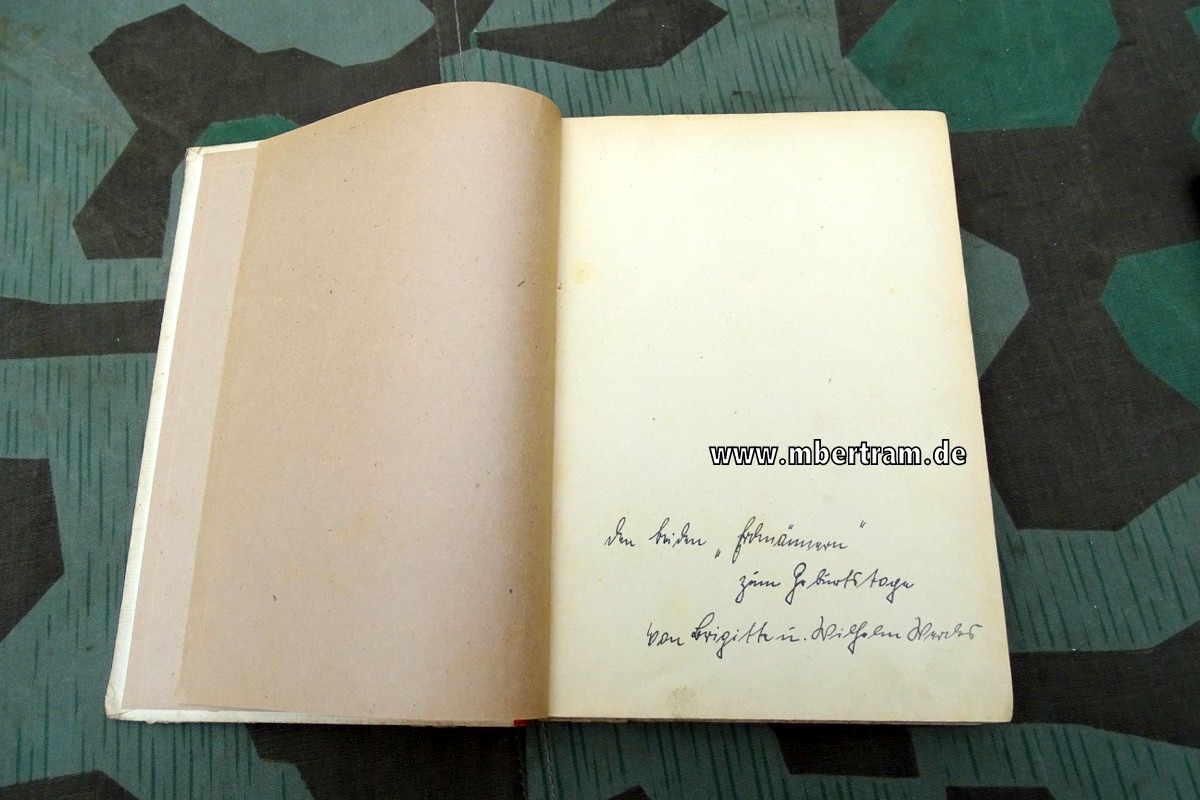 www.mbertram.de
Den beiden „Erdmännern"
zum Geburtstage
von Brigitte u. Wilhelm